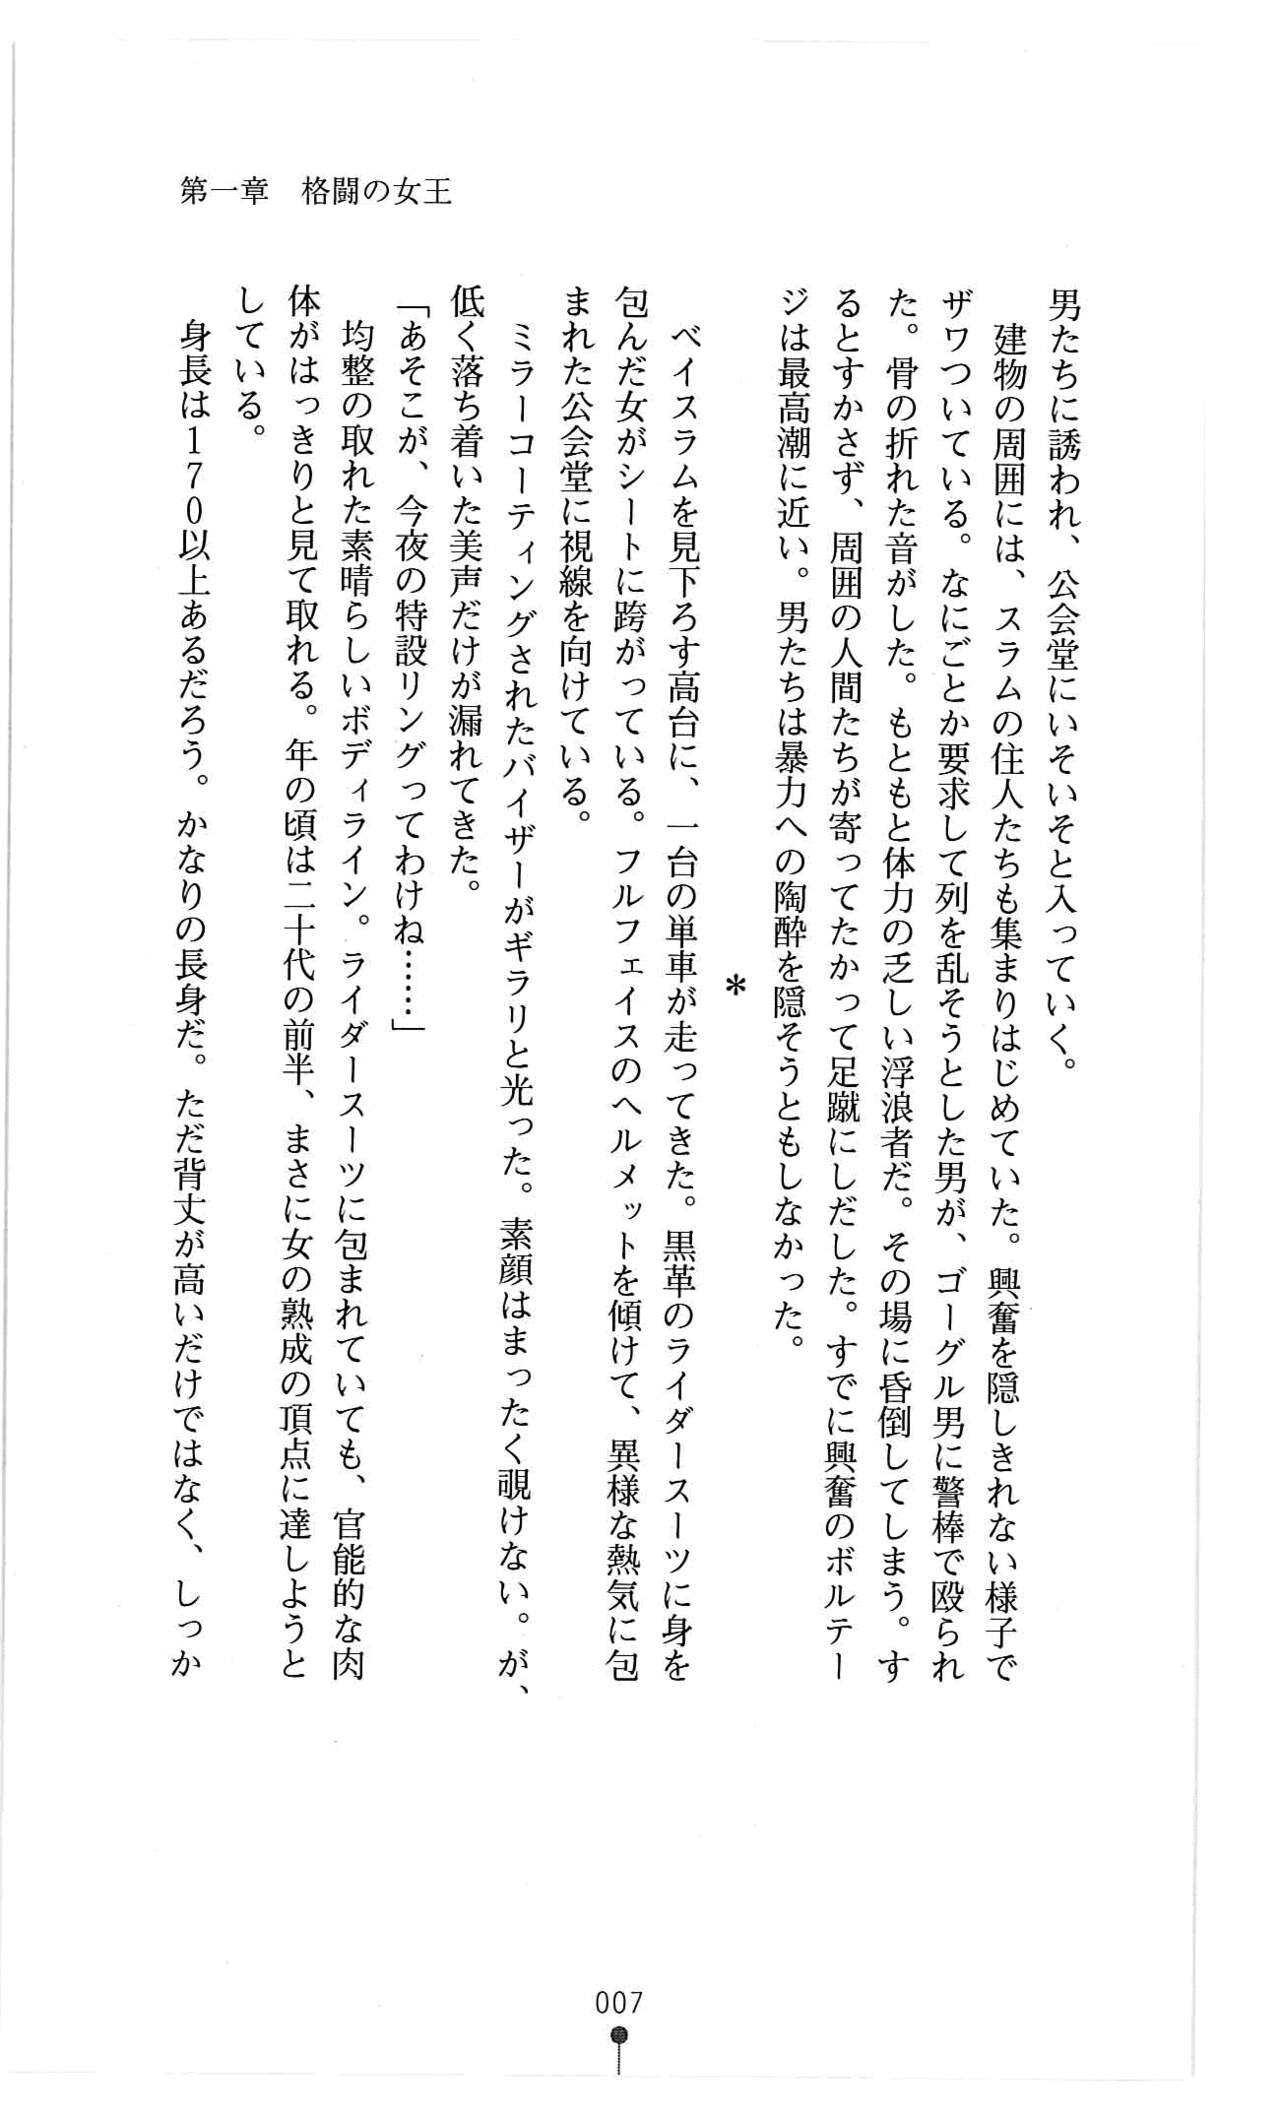 第一章　格闘の女王
男たちに誘われ、公会堂にいそいそと入っていく。
　建物の周囲には、スラムの住人たちも集まりはじめていた。興奮を隠しきれない様子で
ザワついている。なにごとか要求して列を乱そうとした男が、ゴーグル男に警棒で殴られ
た。骨の折れた音がした。もともと体力の乏しい浮浪者だ。その場に昏倒してしまう。す
るとすかさず、周囲の人間たちが寄ってたかって足蹴にしだした。すでに興奮のボルテー
ジは最高潮に近い。男たちは暴力への陶酔を隠そうともしなかった。
＊
　ベイスラムを見下ろす高台に、一台の単車が走ってきた。黒革のライダースーツに身を
包んだ女がシートに跨がっている。フルフェイスのヘルメットを傾けて、異様な熱気に包
まれた公会堂に視線を向けている。
　ミラーコーティングされたバイザーがギラリと光った。素顔はまったく覗けない。が、
低く落ち着いた美声だけが漏れてきた。
「あそこが、今夜の特設リングってわけね……」
　均整の取れた素晴らしいボディライン。ライダースーツに包まれていても、官能的な肉
体がはっきりと見て取れる。年の頃は二十代の前半、まさに女の熟成の頂点に達しようと
している。
　身長は170以上あるだろう。かなりの長身だ。ただ背丈が高いだけではなく、しっか
007